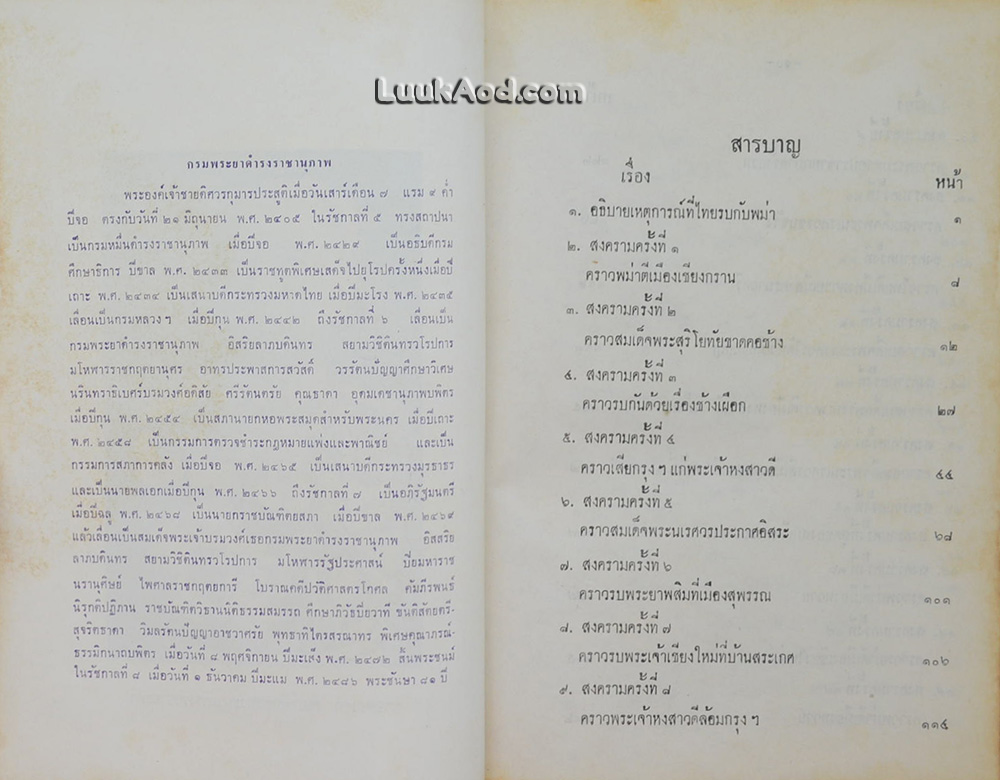 LuukAod.com
กรมพระยาดำรงราชานุภาพ
พระองค์เจ้าชายดิศวรกุมารประสูติเมื่อวันเสาร์เดือน ๗ แรม ๙ ค่ำ
ปีจอ ตรงกับวันที่ ๒๑ มิถุนายน พ.ศ. ๒๔๐๕ ในรัชกาลที่ ๕ ทรงสถาปนา
เป็นกรมหมื่นดำรงราชานุภาพ เมื่อปีจอ พ.ศ. ๒๔๒๙ เป็นอธิบดีกรม
ศึกษาธิการ ปีขาล พ.ศ. ๒๔๓๓ เป็นราชทูตพิเศษเสด็จไปยุโรปครั้งหนึ่งเมื่อปี
เถาะ พ.ศ. ๒๔๓๔ เป็นเสนาบดีกระทรวงมหาดไทย เมื่อปีมะโรง พ.ศ. ๒๔๓๕
เลื่อนเป็นกรมหลวงฯ เมื่อปีกุน พ.ศ. ๒๔๔๒ ถึงรัชกาลที่ ๖ เลื่อนเป็น
กรมพระยาดำรงราชานุภาพ อิสริยลาภบดินทร สยามวิชิตินทรวโรปการ
มโหฬารราชกฤตยานุศร อาทรประพาสการสวัสดิ์ วรรัตนปัญญาศึกษาวิเศษ
นรินทราธิเบศร์บรมวงศ์อดิศัย ศรีรัตนตรัย คุณธาดา อุดมเดชานุภาพบพิตร
เมื่อปีกุน พ.ศ. ๒๔๕๔ เป็นสภานายกหอพระสมุดสำหรับพระนคร เมื่อปีเถาะ
พ.ศ. ๒๔๕๘ เป็นกรรมการตรวจชำระกฎหมายแพ่งและพาณิชย์ และเป็น
กรรมการสภาการคลัง เมื่อปีจอ พ.ศ. ๒๔๖๕ เป็นเสนาบดีกระทรวงมุรธาธร
และเป็นนายพลเอกเมื่อปีกุน พ.ศ. ๒๔๖๖ ถึงรัชกาลที่ ๗ เป็นอภิรัฐมนตรี
เมื่อปีฉลู พ.ศ. ๒๔๖๘ เป็นนายกราชบัณฑิตยสภา เมื่อปีขาล พ.ศ. ๒๔๖๙
แล้วเลื่อนเป็นสมเด็จพระเจ้าบรมวงศ์เธอกรมพระยาดำรงราชานุภาพ อิสสริย
ลาภบดินทร สยามวิชิตินทรวโรปการ มโหฬารรัฐประศาสน์ ปิยมหาราช
นรานุศิษย์ ไพศาลราชกฤตยการี โบราณคดีปวัติศาสตรโกศล คัมภีรพนธ์
นิรุกติปฏิภาน ราชบัณฑิตวิธานนิติธรรมสมรรถ ศึกษาภิวัธปิยวาที ขันติสัตยตรี-
สุจริตธาดา วิมลรัตนปัญญาอาชวาศรัย พุทธาทิไตรสรณาทร พิเศษคุณาภรณ์-
ธรรมิกนาถบพิตร เมื่อวันที่ ๘ พฤศจิกายน ปีมะเส็ง พ.ศ. ๒๔๗๒ สิ้นพระชนม์
ในรัชกาลที่ ๘ เมื่อวันที่ ๑ ธันวาคม ปีมะแม พ.ศ. ๒๔๘๖ พระชันษา ๘๑ ปี
สารบาญ
เรื่อง หน้า
๑. อธิบายเหตุการณ์ที่ไทยรบกับพม่า ๑
๒. สงครามครั้งที่ ๑
คราวพม่าตีเมืองเชียงกราน ๘
๓. สงครามครั้งที่ ๒
คราวสมเด็จพระสุริโยทัยขาดคอช้าง ๑๒
๔. สงครามครั้งที่ ๓
คราวรบกันด้วยเรื่องช้างเผือก ๒๗
๕. สงครามครั้งที่ ๔
คราวเสียกรุง ฯ แก่พระเจ้าหงสาวดี ๔๔
๖. สงครามครั้งที่ ๕
คราวสมเด็จพระนเรศวรประกาศอิสระ ๖๘
๗. สงครามครั้งที่ ๖
คราวรบพระยาพสิมที่เมืองสุพรรณ ๑๐๑
๘. สงครามครั้งที่ ๗
คราวรบพระเจ้าเชียงใหม่ที่บ้านสระเกศ ๑๐๖
๙. สงครามครั้งที่ ๘
คราวพระเจ้าหงสาวดีล้อมกรุง ฯ ๑๑๔